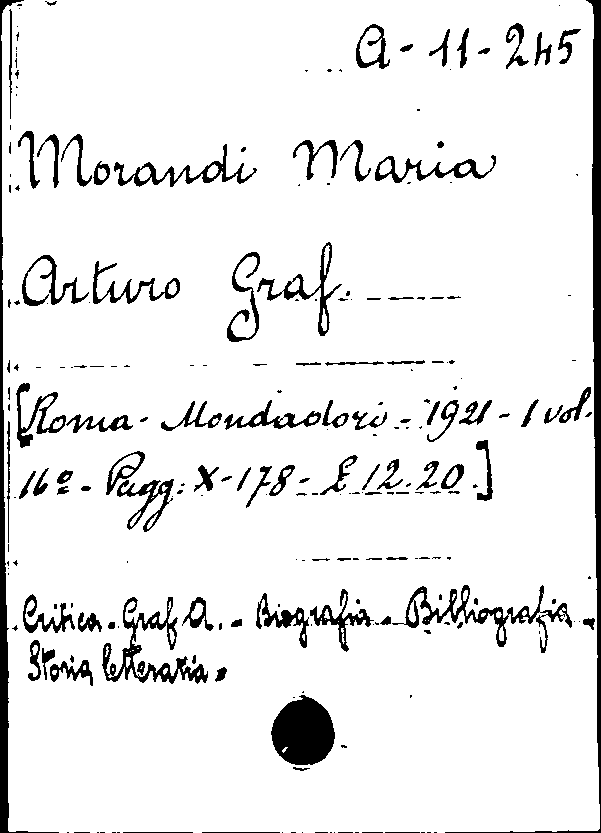 A-11-245
Morandi Maria
Arturo Graf.
[Roma - Mondadori - 1921 - 1 vol.
16º - Pagg: X-178 - £ 12.20.]
Critica - Graf A. - Biografia - Bibliografia -
Storia letteraria.